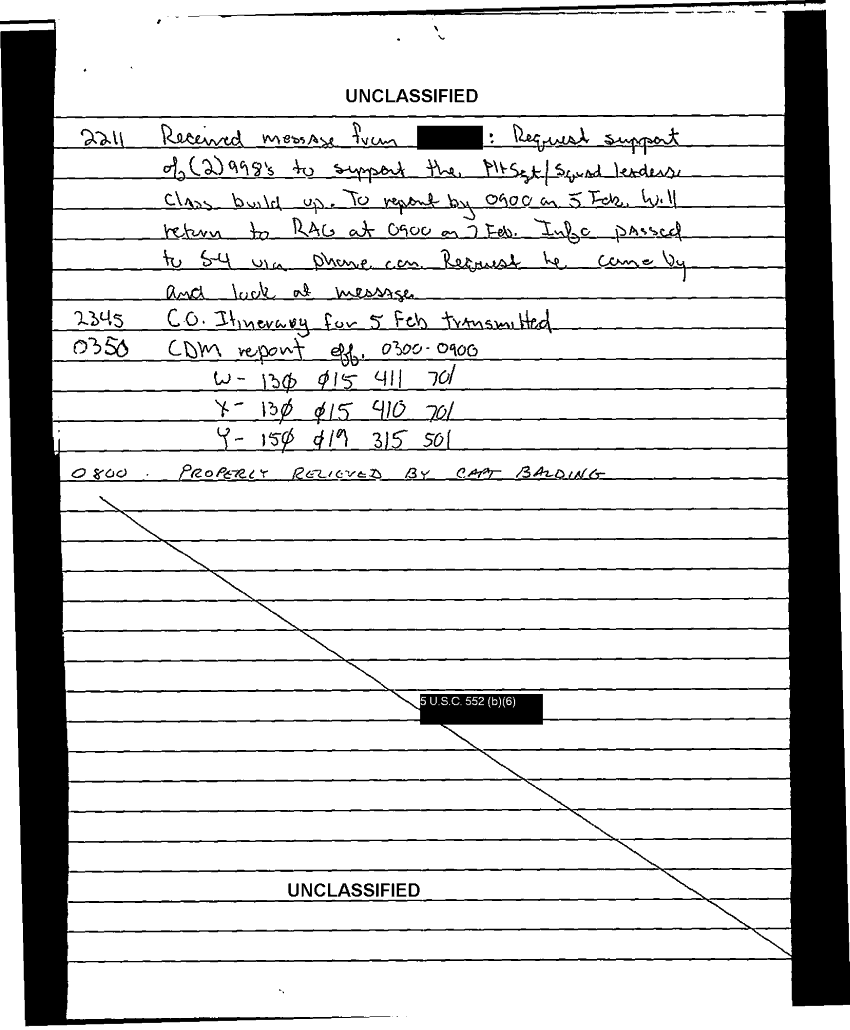 UNCLASSIFIED
2211 Received message from : Request support
of (2) 998's to support the PltSgt/Squad leaders
Class build up. To report by 0900 on 5 Feb. Will
return to RAG at 0900 on 7 Feb. Info passed
to S-4 via phone con. Request he come by
and look at message
2345 CO. Itinerary for 5 Feb transmitted
0350 CDM report eff. 0300-0900
W- 13Ø Ø15 411 701
X- 13Ø Ø15 410 701
Y- 15Ø Ø19 315 501
0800 . PROPERLY RELIEVED BY CAPT BALDING
5 U.S.C. 552 (b)(6)
UNCLASSIFIED